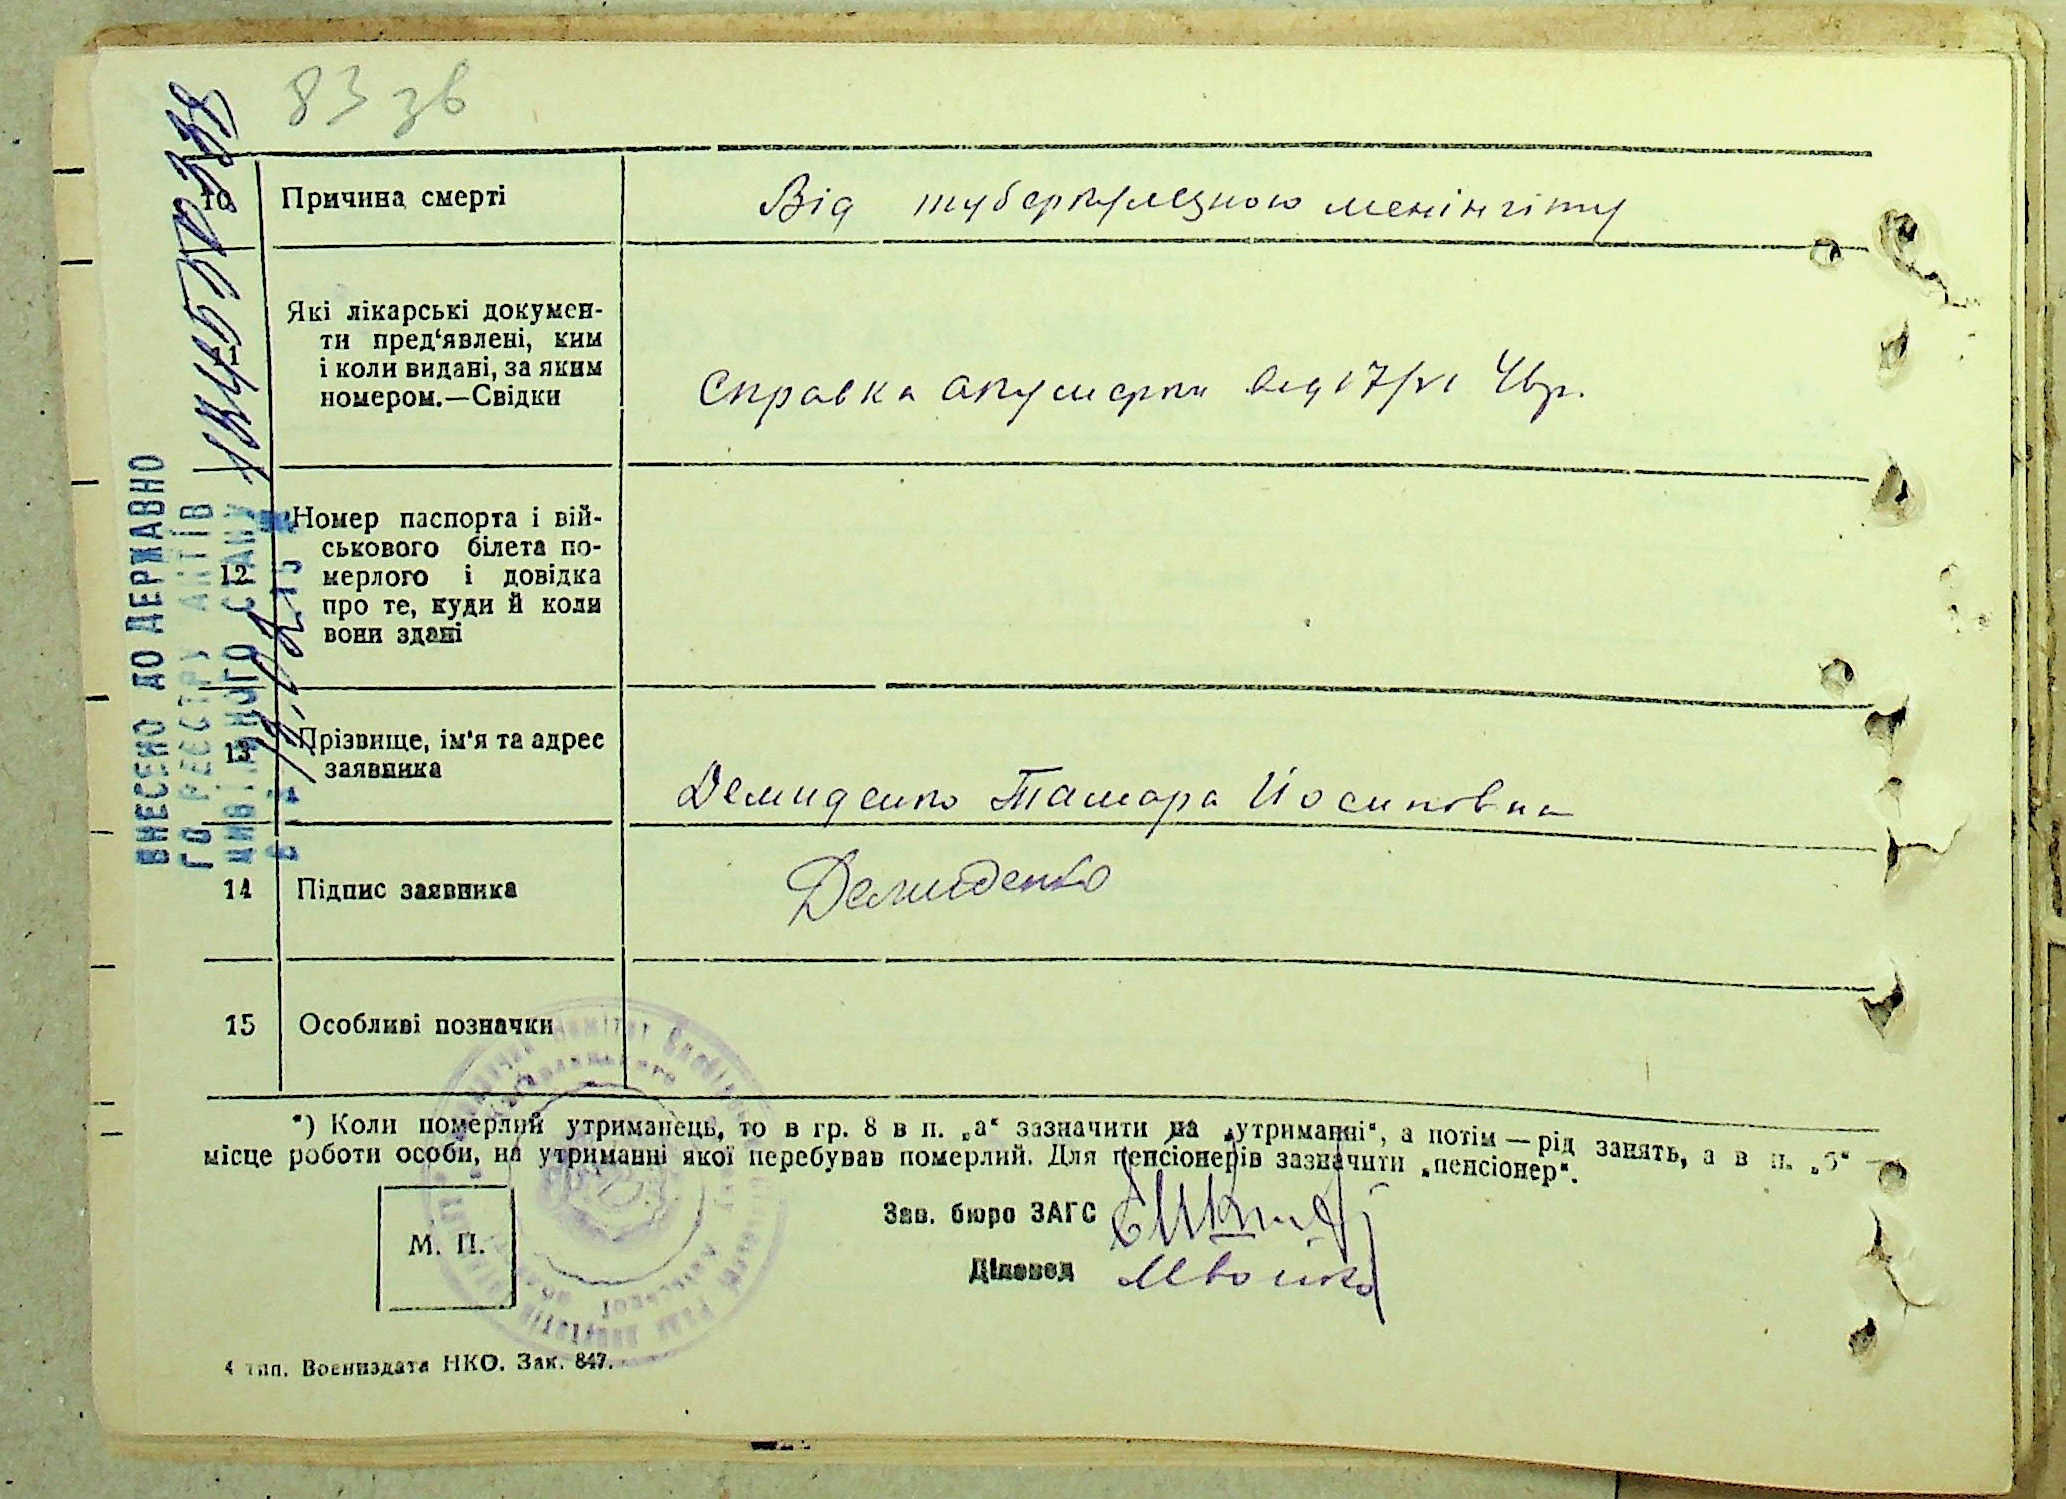 83 зв
10 Причина смерті
Від туберкульозного менінгіту
Які лікарські докумен-
ти пред‘явлені, ким
11 і коли видані, за яким
номером.—Свідки
Справка акушерки від 17/VI 46р.
Номер паспорта і вій-
ськового білета по-
12 мерлого і довідка
про те, куди й коли
вони здані
13 Прізвище, ім‘я та адрес
заявника
Демиденко Тамара Йосиповна
14 Підпис заявника
Демиденко
15 Особливі позначки
*) Коли померлий утриманець, то в гр. 8 в п. „а“ зазначити на „утриманні“, а потім — рід занять, а в п. „б“ —
місце роботи особи, на утриманні якої перебував померлий. Для пенсіонерів зазначити „пенсіонер“.
М. П.
Зав. бюро ЗАГС
Діловод
4 тип. Воениздата НКО. Зак. 847.
ВНЕСЕНО ДО ДЕРЖАВНО
ГО РЕЄСТРУ АКТІВ
ЦИВІЛЬНОГО СТАНУ